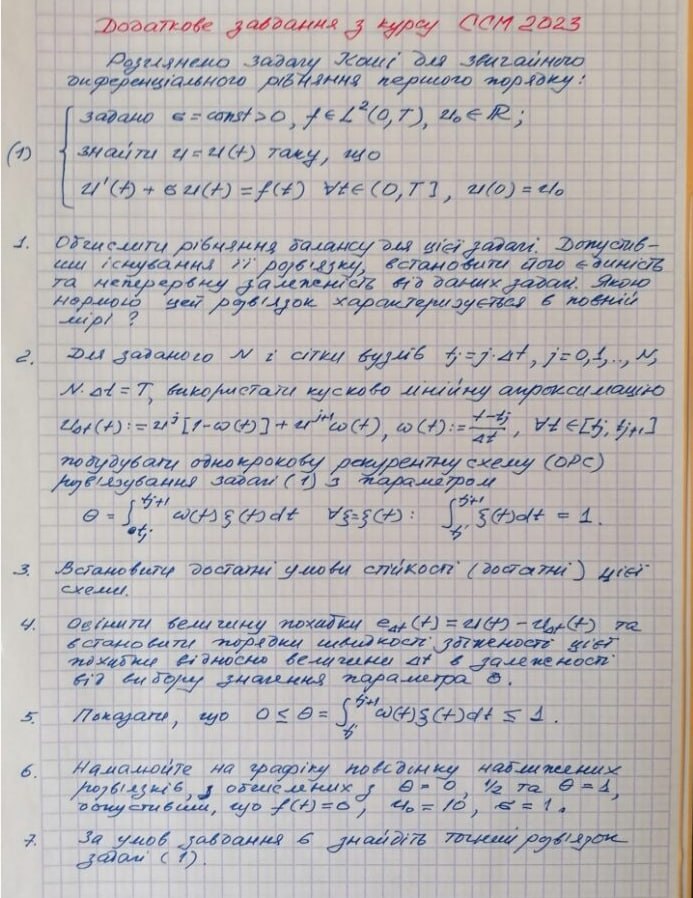 Додаткове завдання з курсу ССМ 2023
Розглянемо задачу Коші для звичайного
диференціального рівняння першого порядку:
задано σ = const > 0, f ∈ L²(0,T), u₀ ∈ ℝ;
(1) знайти u = u(t) таку, що
u'(t) + σu(t) = f(t) ∀t ∈ (0,T], u(0) = u₀
1. Обчислити рівняння балансу для цієї задачі. Допустив-
ши існування її розв'язку, встановити його єдиність
та неперервну залежність від даних задачі. Якою
нормою цей розв'язок характеризується в повній
мірі?
2. Для заданого N і сітки вузлів tⱼ = j·Δt, j = 0,1,..,N,
N·Δt = T, використати кусково лінійну апроксимацію
u_Δt(t) := uʲ[1-ω(t)] + uʲ⁺¹ω(t), ω(t) := (t-tⱼ)/Δt, ∀t ∈ [tⱼ, tⱼ₊₁]
побудувати однокрокову рекурентну схему (ОРС)
розв'язування задачі (1) з параметром
θ = ∫_{tⱼ}^{tⱼ₊₁} ω(t)ξ(t)dt ∀ξ=ξ(t): ∫_{tⱼ}^{tⱼ₊₁} ξ(t)dt = 1.
3. Встановити достатні умови стійкості (достатні) цієї
схеми.
4. Оцінити величину похибки e_Δt(t) = u(t) - u_Δt(t) та
встановити порядки швидкості збіжності цієї
похибки відносно величини Δt в залежності
від вибору значення параметра θ.
5. Показати, що 0 ≤ θ = ∫_{tⱼ}^{tⱼ₊₁} ω(t)ξ(t)dt ≤ 1.
6. Намалюйте на графіку поведінку наближених
розв'язків, обчислених з θ = 0, ½ та θ = 1,
допустивши, що f(t) = 0, u₀ = 10, σ = 1.
7. За умов завдання 6 знайдіть точний розв'язок
задачі (1).